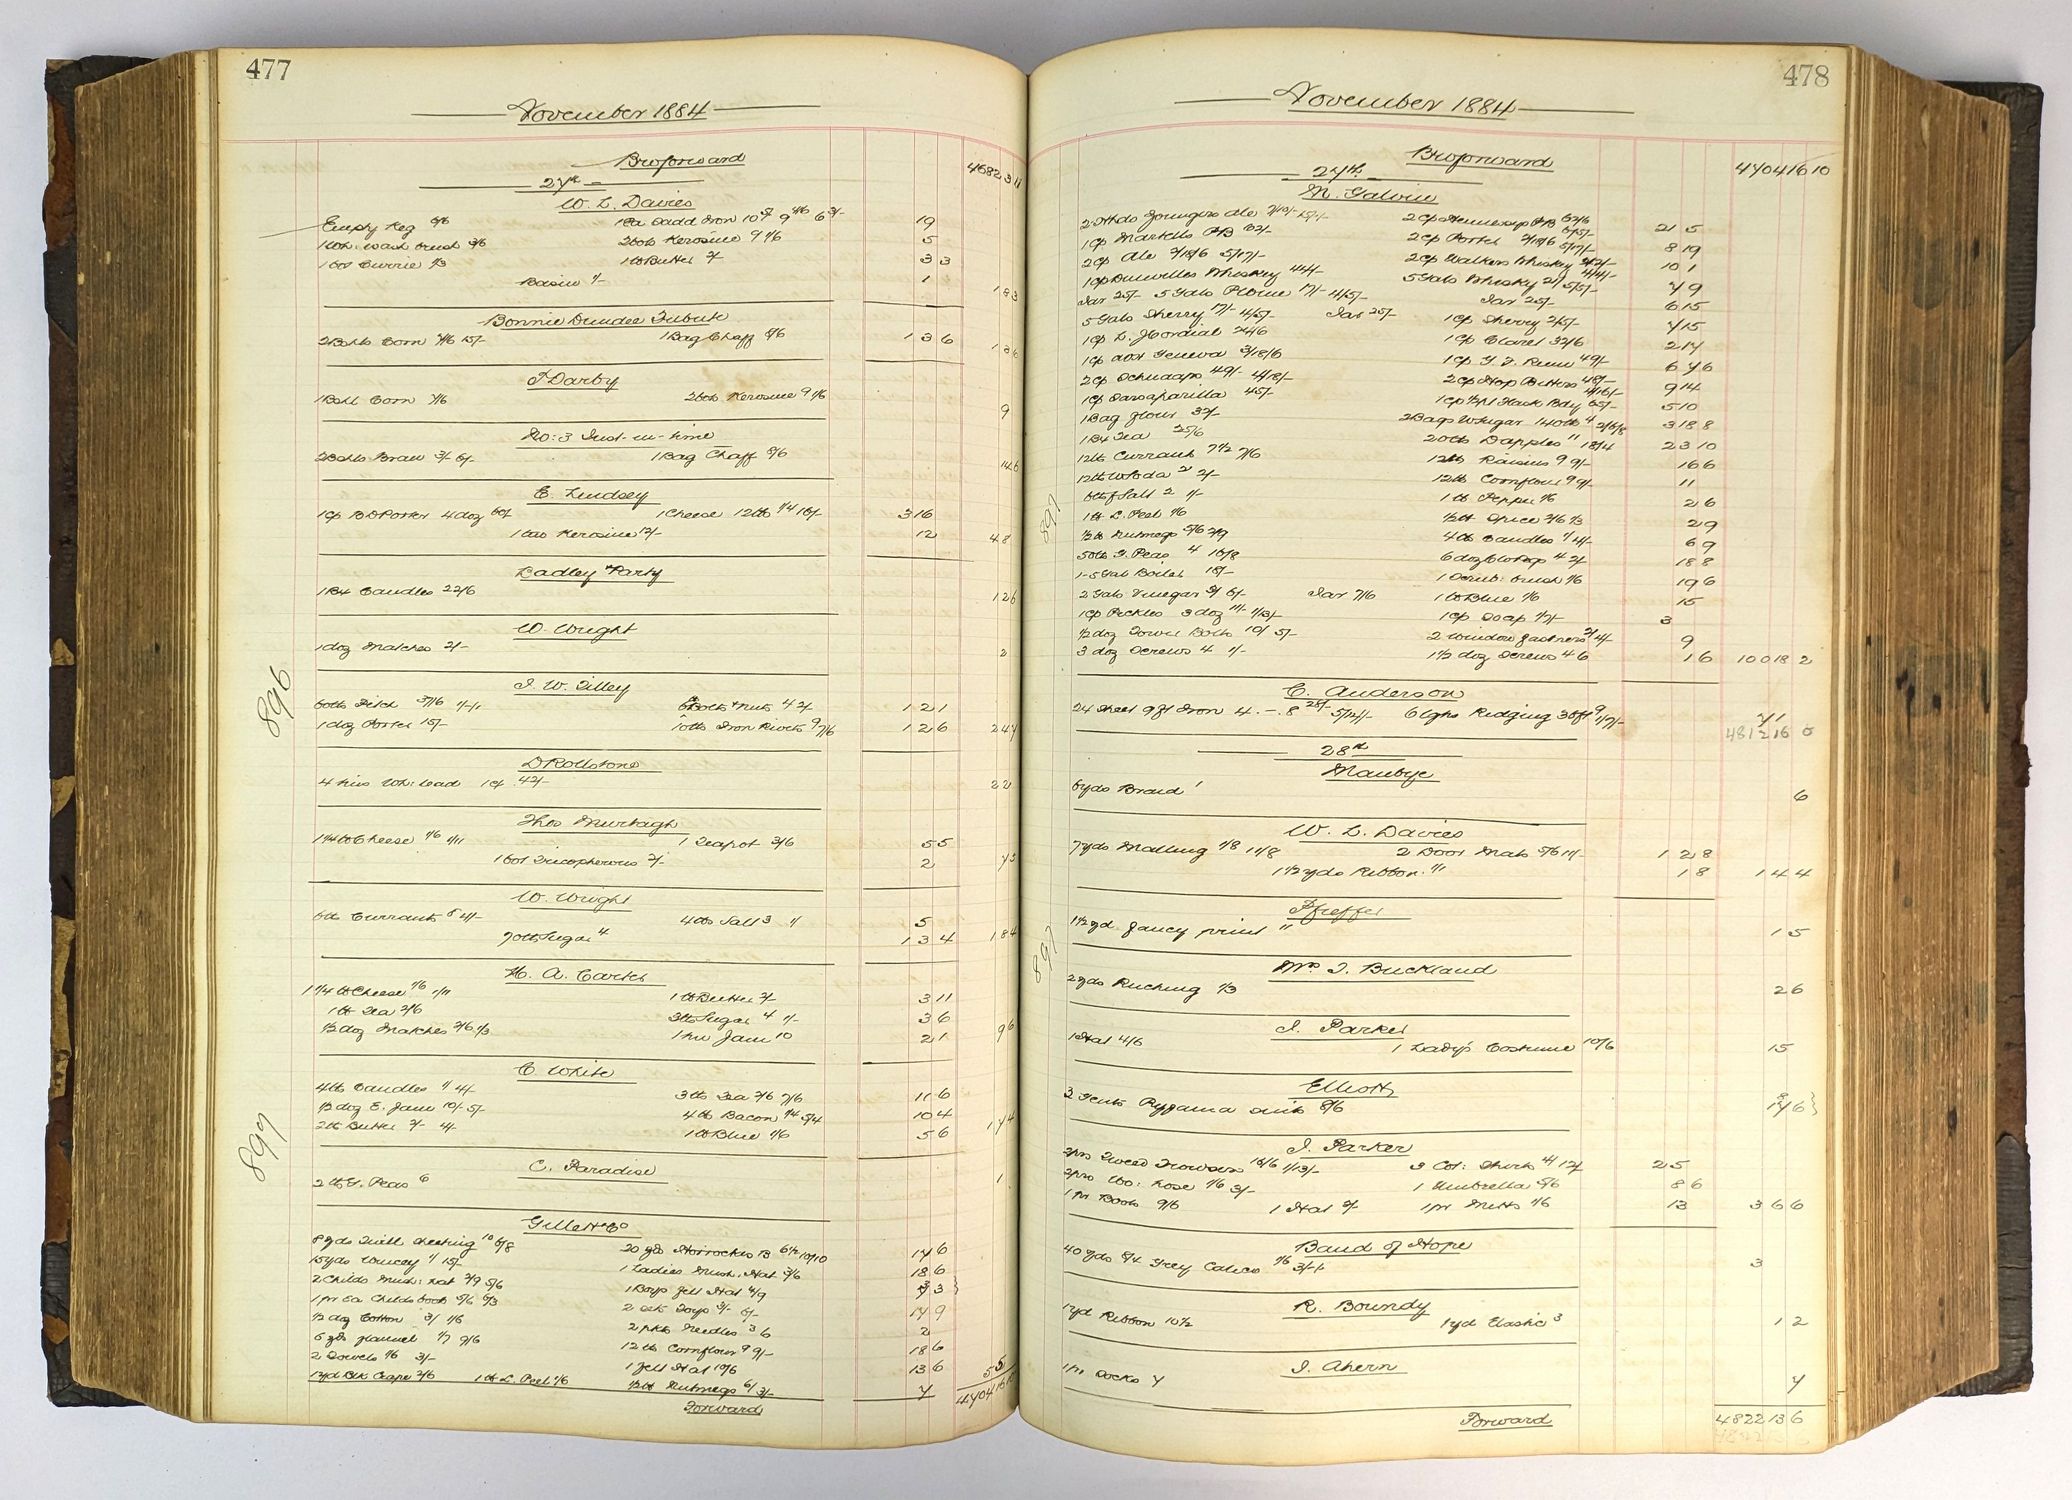 477
November 1884
Broforward 4682 3 11
27th
W. L. Davies
Empty Keg 19
1 Wh: wash brush 3/6 2 bots Kerosine 9 1/6 5
1 bot Currie 1/3 1 lb Butter 2/- 3 3
Basin 1/- 1 1 8 3
Bonnie Dundee Tribute
2 Bshls Corn 7/6 15/- 1 Bag Chaff 8/6 1 3 6 1 3 6
J Darby
1 Bshl Corn 7/6 2 bots Kerosine 9 1/6 9
No: 3 Just-in-time
2 Bshls Bran 3/- 6/- 1 Bag Chaff 8/6 14 6
E. Lindsey
1 Cs B D Porter 4 doz 1 Cheese 12 lbs 1/4 16/- 3 16
Kerosine 12/- 12 4 8
Badley & Party
1 Bx Candles 22/6 1 2 6
W. Wright
1 doz Matches 2/- 2
J. W. Tilley
6 bolts & nuts 4 2/- 1 2 1
1 doz Porter 15/- 10 lbs Iron Rivets 9 7/6 1 2 6 2 4 7
D Rollstone
4 tins Wh: lead 42/- 2 2
Thos Murtagh
1 1/4 lb Cheese 1/6 1/11 1 Teapot 3/6 5 5
1 bot Tricopherous 2/- 2 7 5
W. Wright
6 lb Currants 8 4/- 4 lbs Salt 3 1/ 5
70 lb Sugar 4 1 3 4 1 8 4
896
H. A. Carter
1 1/4 lb Cheese 1/6 1/11 1 lb Butter 2/- 3 11
1 lb Tea 2/6 3 lb Sugar 4 1/- 3 6
1/2 doz Matches 2/6 1/3 1 tin Jam 10 2 1 9 6
C. White
4 lb Candles 1/ 4/- 3 lb Tea 2/6 7/6 11 6
1/2 doz E. Jam 10/- 5/- 4 lb Bacon 1/4 5/4 10 4
2 lb Butter 2/- 4/- 1 lb Blue 1/6 5 6 1 7 4
897
C. Paradise
2 lb S. Peas 6 1
Gillett & Co
8 yds Twill sheeting 10 6/8 20 yds Horrockses B 6 1/2 10/10 17 6
15 yds Wincey 1/ 15/- 1 Ladies Mush: Hat 3/6 18 6
2 Childs Mush: hat 2/9 5/6 1 Boys felt Hat
1 pr Ea Childs boots 2 sets Toys 3/- 6/- 17 9
1/2 doz Cotton 3/ 1/6 2 pkts Needles 3 6 2
6 yds flannel 1/7 9/6 12 lb Cornflour 9 9/- 18 6
2 Towels 1/6 3/- 1 felt Hat 10/6 13 6
1 yd Blk Crape 2/6 1 lb L. Peel 1/6 1/2 lb Nutmegs 6/ 3/- 7 5 5
Forward 4704 16 10
478
November 1884
Broforward 4704 16 10
27th
M. Galvin
2 Hhds Youngers Ale 7/10/- 15/-/- 2 Cs Hennessys PB 62/6 6/5/- 21 5
1 Cs Martells PB 62/- 2 Cs Porter 2/18/6 5/17/- 8 19
2 Cs Ale 2/18/6 5/17/- 2 Cs Walkers Whiskey 42/- 4/4/- 10 1
1 Cs Dunvilles Whiskey 44/- 5 Gals Whisky 21/ 5/5/- 7 9
Jar 25/- 5 Gals P Wine 17/- 4/5/- Jar 25/- 6 15
5 Gals Sherry 17/- 4/5/- Jar 25/- 1 Cs Sherry 2/5/- 7 15
1 Cs L. J Cordial 24/6 1 Cs Claret 32/6 2 17
1 Cs Geneva 3/18/6 1 Cs Rum 49/- 6 7 6
2 Cs Schnapps 49/- 4/18/- 2 Cs Hop Bitters 48/- 4/16/- 9 14
1 Cs Sarsaparilla 45/- 1 Cs 1/2 pt Flask Bdy 65/- 5 10
1 Bag flour 32/- 2 Bags W Sugar 140 lb 4 2/6/8 3 18 8
1 Bx Tea 25/6 20 lb D apples 11 18/4 2 3 10
12 lb Currants 7 1/2 7/6 12 lb Raisins 9 9/- 16 6
12 lb W Soda 2 2/- 12 lb Cornflour 9 9/- 11
6 lb f Salt 2 1/- 1 lb Pepper 1/6 2 6
1 lb L. Peel 1/6 1/2 lb Spice 2/6 1/3 2 9
1/2 lb Nutmegs 5/6 2/9 4 lb Candles 1/ 4/- 6 9
897
50 lb S. Peas 4 16/8 6 doz 4 2/- 18 8
1-5 Gal Boiler 18/- 1 Scrub: brush 1/6 19 6
2 Gals Vinegar 3/ 6/- Jar 7/6 1 lb Blue 1/6 15
1 Cs Pickles 3 doz 11/- 1/13/- 1 Cs Soap 3
1/2 doz Tower Bolts 10/ 5/- 2 Window fastners 2/ 4/- 9
3 doz Screws 4 1/- 1 1/2 doz Screws 4 6 1 6 100 18 2
C. Anderson
24 sheet 9 ft Iron 4.-.8 28/- 5/12/- 6 lghs Ridging 36 ft 9 1/7/- 7 1
4812 16 0
28th
Maubye
6 yds Braid 1 6
W. L. Davies
7 yds Matting 1/8 11/8 2 Door Mats 5/6 11/- 1 2 8
1 1/2 yds Ribbon 1/1 1 8 1 4 4
Pfeffer
1 1/2 yd fancy print 11 1 5
897
Mrs J. Buckland
2 yds Ruching 1/3 2 6
J. Parker
1 Hat 4/6 1 Lady's Costume 10/6 15
Elliott
2 Gents Pyjama suits 8/6 17 6
J. Parker
2 prs Tweed Trousers 16/6 1/13/- 3 Col: Shirts 4/ 12/- 2 5
2 prs Wo: hose 1/6 3/- 1 Umbrella 5/6 8 6
1 pr Boots 9/6 1 Hat 2/- 1 pr Mitts 1/6 13 3 6 6
Band of Hope
40 yds 8/4 Grey Calico 1/6 3/-/- 3
R. Boundy
1 yd Ribbon 10 1/2 1 yd Elastic 3 1 2
J. Ahern
1 pr Socks 7 7
Forward 4822 13 6